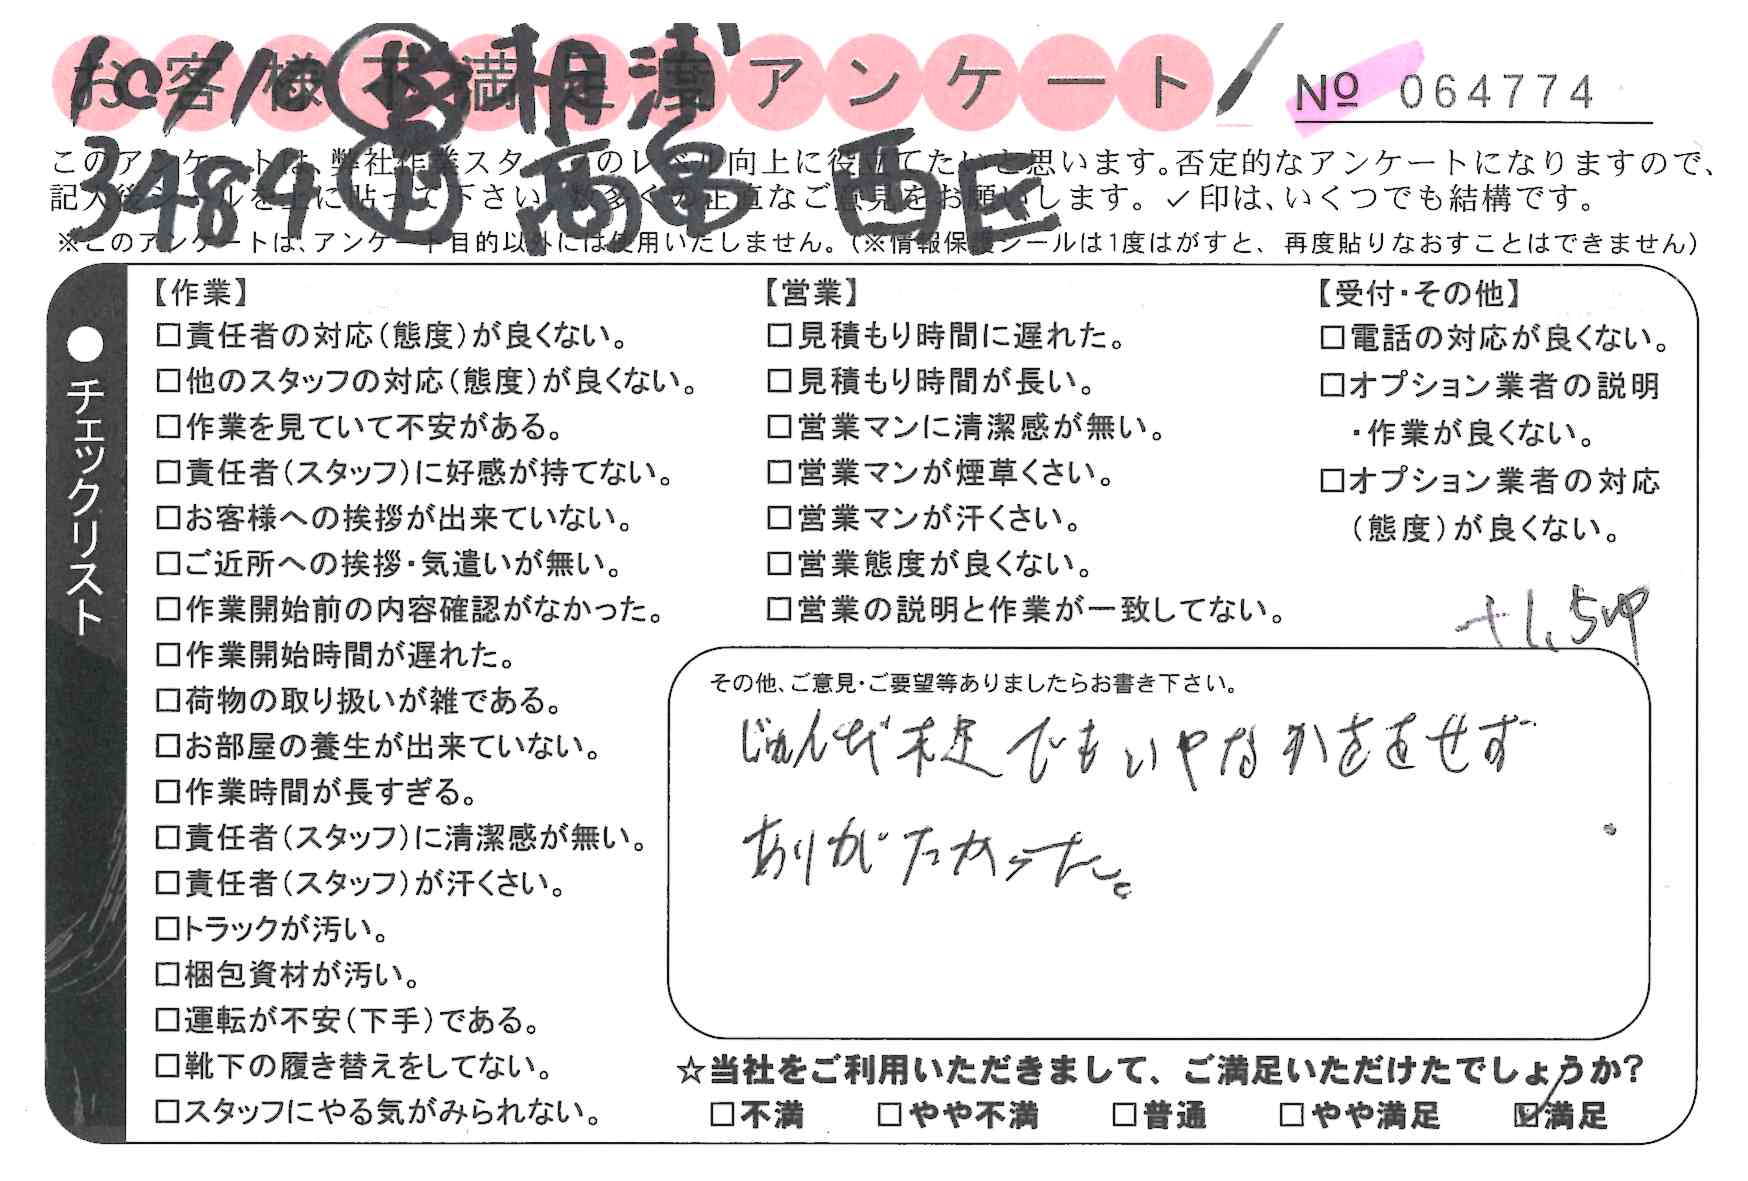 お客様不満足度アンケート
№ 064774
10/10 相浦
3484 高畠 西区
このアンケートは、弊社作業スタッフのレベル向上に役立てたいと思います。否定的なアンケートになりますので、
記入後シールを上に貼って下さい。数多くの正直なご意見をお願いします。✓印は、いくつでも結構です。
※このアンケートは、アンケート目的以外には使用いたしません。(※情報保護シールは1度はがすと、再度貼りなおすことはできません)
●チェックリスト
【作業】
□責任者の対応(態度)が良くない。
□他のスタッフの対応(態度)が良くない。
□作業を見ていて不安がある。
□責任者(スタッフ)に好感が持てない。
□お客様への挨拶が出来ていない。
□ご近所への挨拶・気遣いが無い。
□作業開始前の内容確認がなかった。
□作業開始時間が遅れた。
□荷物の取り扱いが雑である。
□お部屋の養生が出来ていない。
□作業時間が長すぎる。
□責任者(スタッフ)に清潔感が無い。
□責任者(スタッフ)が汗くさい。
□トラックが汚い。
□梱包資材が汚い。
□運転が不安(下手)である。
□靴下の履き替えをしてない。
□スタッフにやる気がみられない。
【営業】
□見積もり時間に遅れた。
□見積もり時間が長い。
□営業マンに清潔感が無い。
□営業マンが煙草くさい。
□営業マンが汗くさい。
□営業態度が良くない。
□営業の説明と作業が一致してない。
【受付・その他】
□電話の対応が良くない。
□オプション業者の説明
・作業が良くない。
□オプション業者の対応
(態度)が良くない。
その他、ご意見・ご要望等ありましたらお書き下さい。
じゅんび不足でもいやなかおをせず
ありがたかった。
☆当社をご利用いただきまして、ご満足いただけたでしょうか?
□不満 □やや不満 □普通 □やや満足 ☑満足